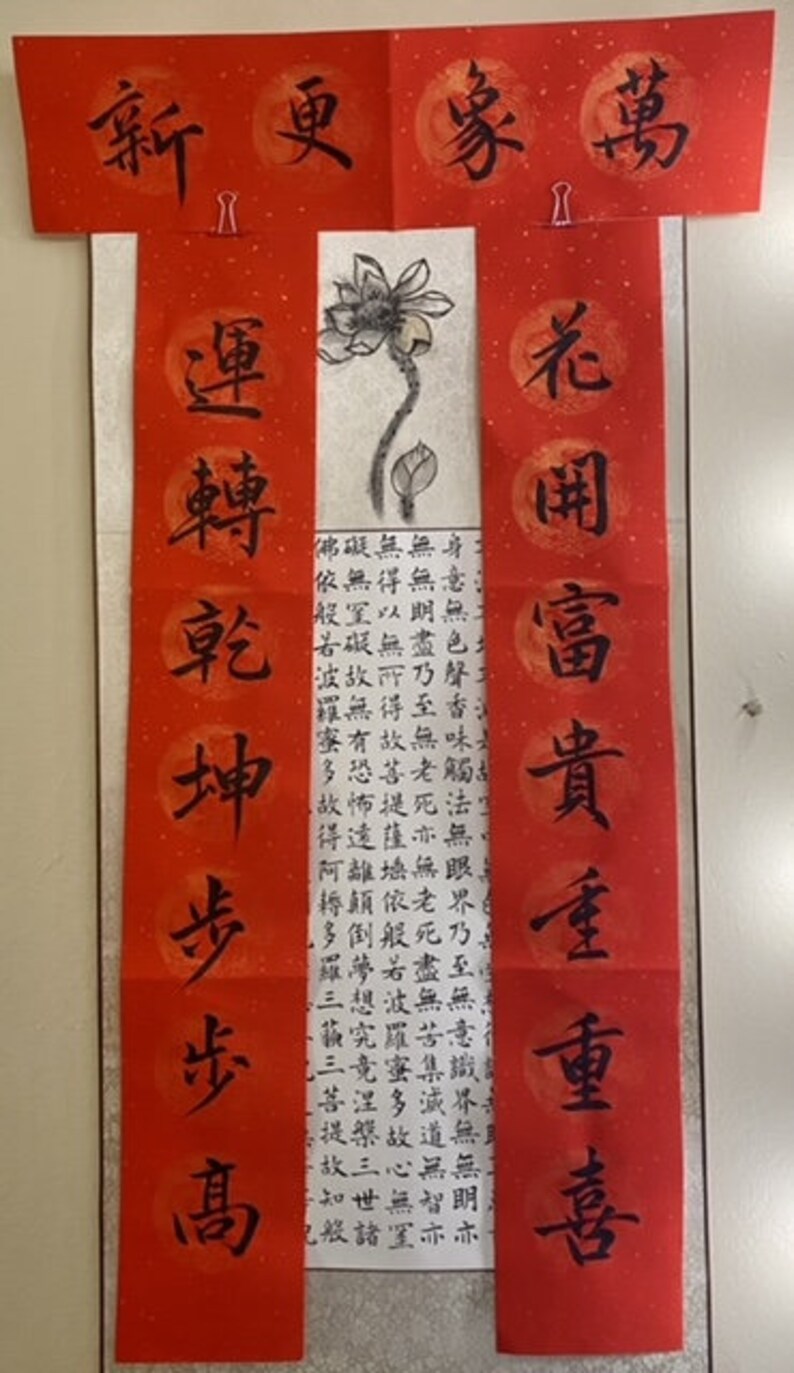 萬象更新
花開富貴重重喜
身意無色聲香味觸法無眼界乃至無意識界無無明亦
無無明盡乃至無老死亦無老死盡無苦集滅道無智亦
無得以無所得故菩提薩埵依般若波羅蜜多故心無罣
礙無罣礙故無有恐怖遠離顛倒夢想究竟涅槃三世諸
佛依般若波羅蜜多故得阿耨多羅三藐三菩提故知般
運轉乾坤步步髙